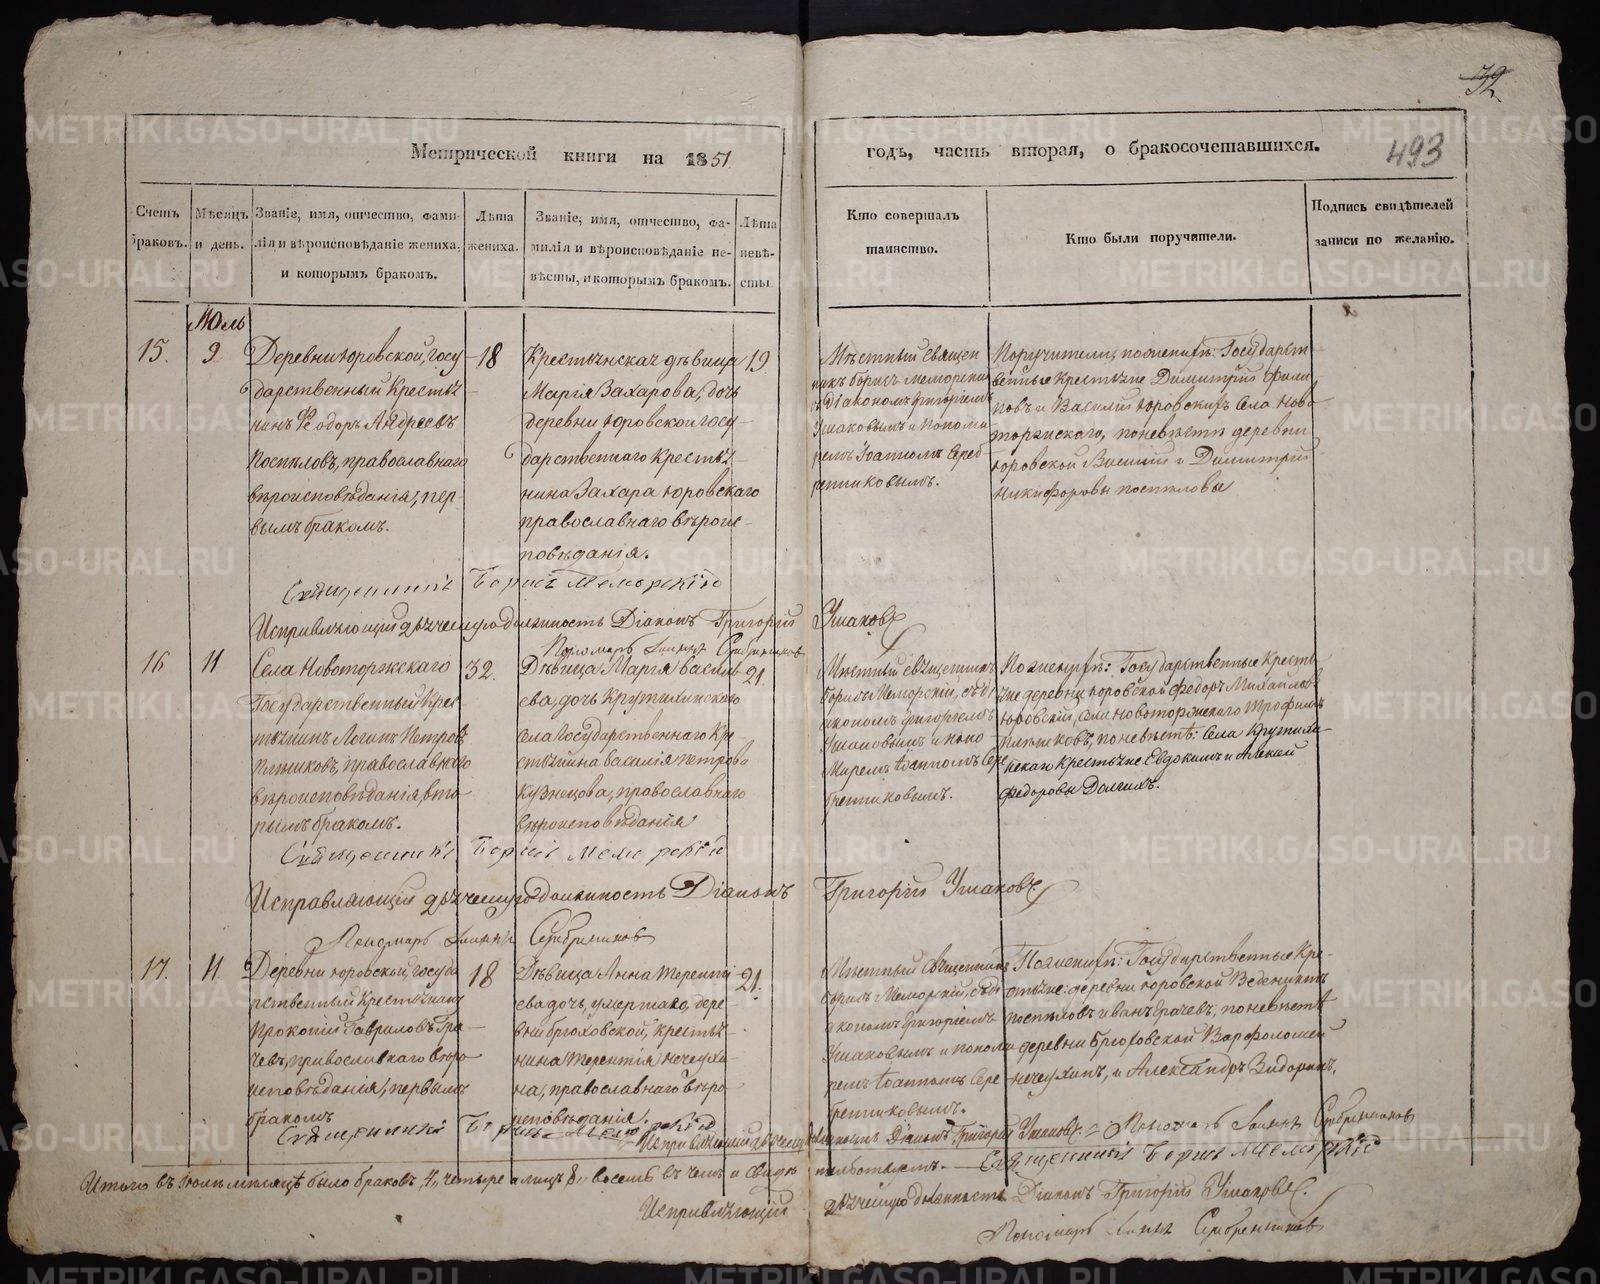 32
493
Метрической книги на 1851
годъ, часть вторая, о бракосочетавшихся.
Счетъ браковъ.
Мѣсяцъ и день.
Званіе, имя, отчество, фами-
лія и вѣроисповѣданіе жениха,
и которымъ бракомъ.
Лѣта
жениха.
Званіе, имя, отчество, фа-
милія и вѣроисповѣданіе не-
вѣсты, и которымъ бракомъ.
Лѣта
невѣ-
сты
Кто совершалъ
таинство.
Кто были поручители.
Подпись свидѣтелей
записи по желанію.
Июль
15.
9
Деревни Юровской, госу-
дарственный Кресть-
нинъ Ѳеодоръ Андреевъ
Поспѣловъ, православнаго
вѣроисповѣданія, пер-
вымъ бракомъ.
18
Крестьнская дѣвица
Марія Захарова, дочь
деревни Юровской госу-
дарственнаго Кресть-
нина Захара Юровскаго
православнаго вѣроис-
повѣданія.
19.
Мѣстный Священ
никъ Борисъ Меморский
съ Діакономъ Григоріемъ
Ушаковымъ и Понома
ремъ Іоанномъ Сереб
ренниковымъ.
Поручители, по женихѣ: Государст-
венные Крестьне Димитрій Фили-
повъ и Василій Юровскихъ Села Ново-
торжскаго, по невѣстѣ деревни
Юровской Василій и Димитрій
Никифоровы Поспѣловы
Священникъ Борисъ Меморскій
Исправляющій дьячешую должность Діаконъ Григорій Ушаковъ
Пономарь Іоаннъ Серебренниковъ
16
11
Села Новоторжскаго
Государственный Крес-
тьнинъ Логинъ Петровъ
православнаго
вѣроисповѣданія, вто-
рымъ бракомъ.
32.
Дѣвица Марія Василь-
ева, дочь Крутихинскаго
села Государственнаго Кре-
стьнина Василія Петрова
Кузнецова, православнаго
вѣроисповѣданія
21.
Мѣстный священникъ
Борисъ Меморскій, съ Ді
акономъ Григоріемъ
Ушаковымъ и Поно
маремъ Іоанномъ Сере
бренниковымъ.
По женихѣ: Государственные Кресть-
не деревни Юровской Федоръ Михайловъ
Юровскій, Села Новоторжскаго Трофимъ
по невѣстѣ: Села Крутихи-
нскаго Крестьне Евдокимъ и Алексей
Федоровы Долгихъ.
Священникъ Борисъ Меморскій
Исправляющій дьячешую должность Діаконъ Григорій Ушаковъ
Пономарь Іоаннъ Серебренниковъ
17.
11.
Деревни Юровской, госуда
рственный Крестьнинъ
Прокопій Гавриловъ Гра-
чевъ, православнаго вѣро
исповѣданія, первымъ
бракомъ
18
Дѣвица Анна Теренті
ева дочь, умершаго, дере-
вни Брюховской, кресть-
нина Терентія Нечеухи-
на, православнаго вѣро
исповѣданія
21.
Мѣстный Священникъ
Борисъ Меморскій, съ Ді
акономъ Григоріемъ
Ушаковымъ и Поно ма
ремъ Іоанномъ Сере
бренниковымъ.
По женихѣ: Государственные Кре-
стьне: деревни Юровской Веденихтъ
Поспѣловъ и Иванъ Грачевъ, по невѣстѣ
деревни Брюховской Варфоломей
Нечеухинъ, и Александръ Сидоринъ,
Священникъ Борисъ Меморскій
Исправляющій дьячешую должность Діаконъ Григорій Ушаковъ. Пономарь Іоаннъ Серебренниковъ
Итого въ Июлѣ мѣсяцѣ было браковъ 4, четыре а лицъ 8, восемь въ чемъ и свидѣ тельствуемъ. Священникъ Борисъ Меморскій
Исправляющій дьячешую должность Діаконъ Григорій Ушаковъ.
Пономарь Іоаннъ Серебренниковъ
METRIKI.GASO-URAL.RU